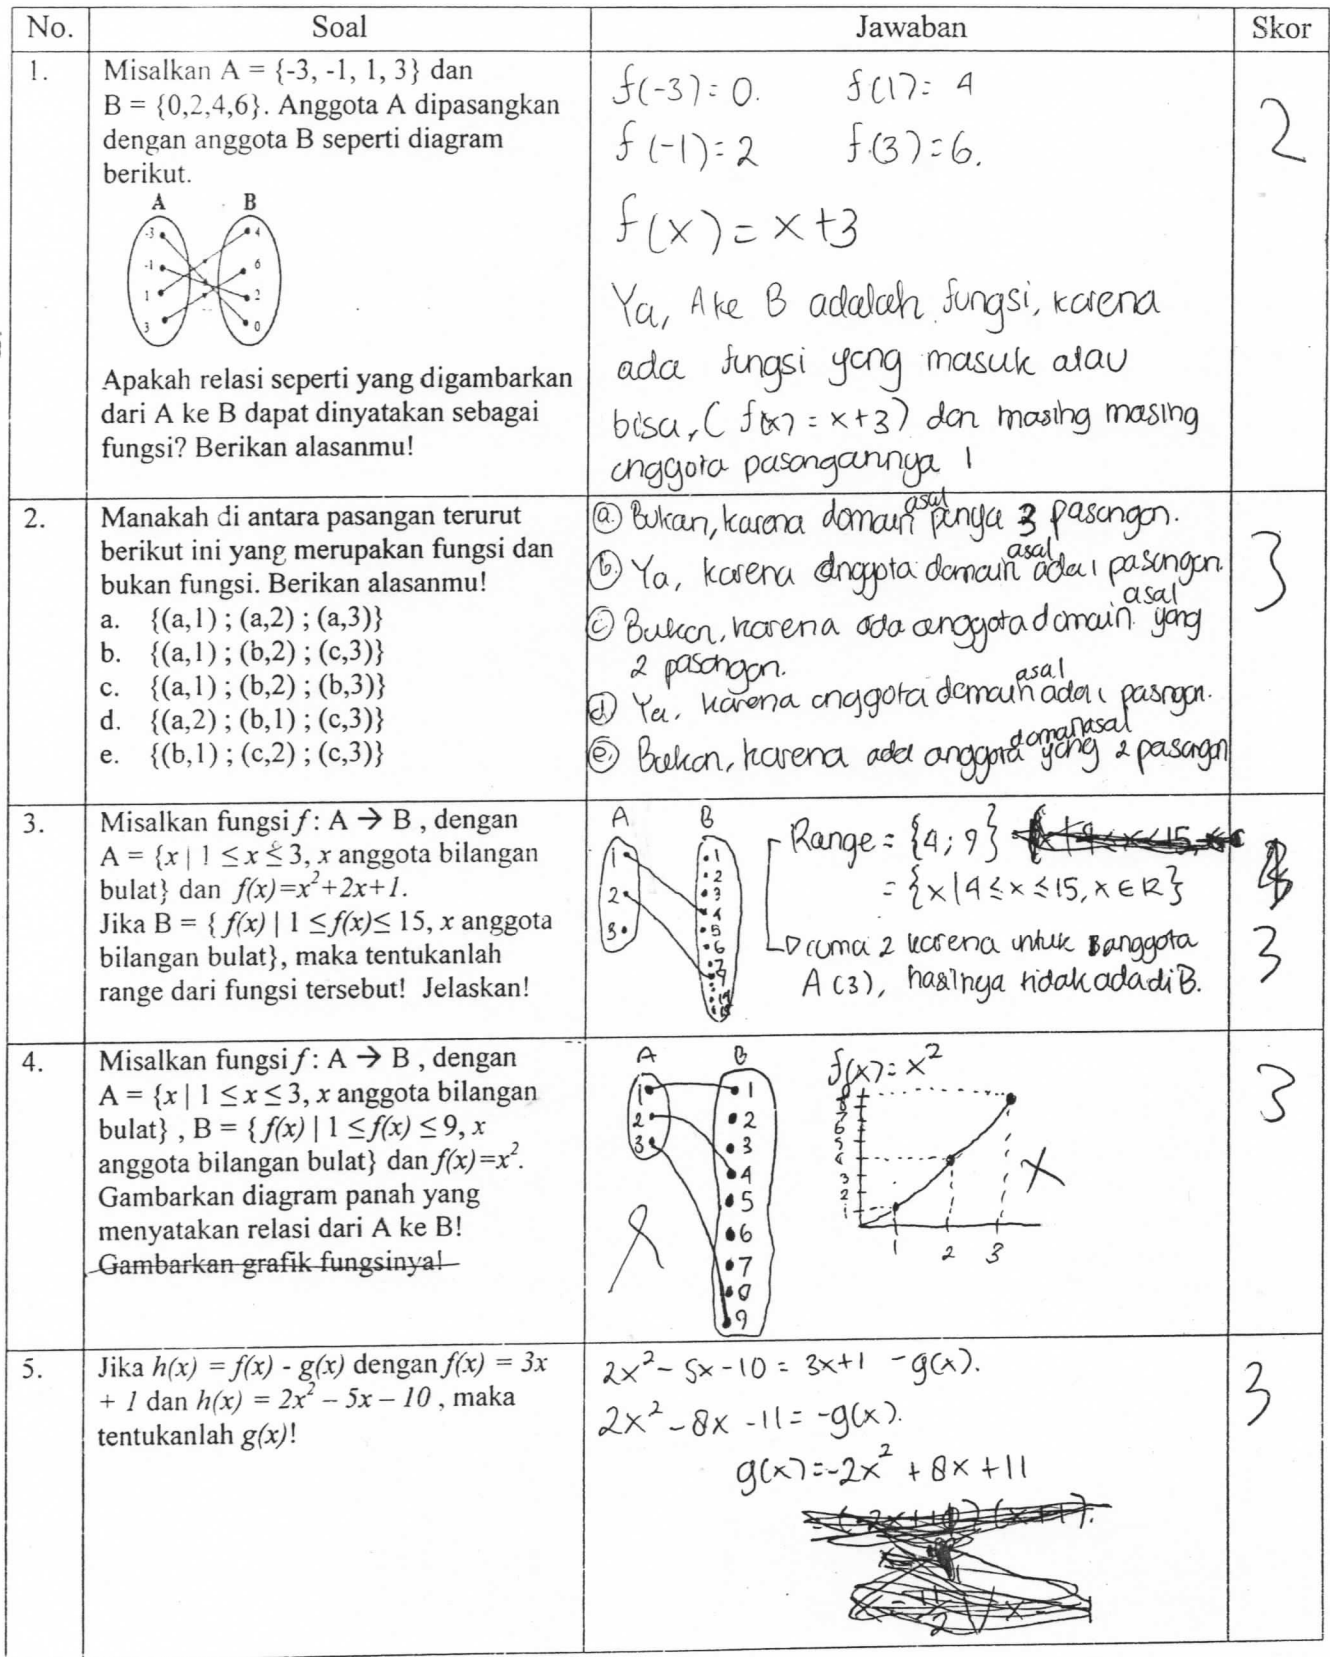 No. Soal Jawaban Skor
1.
Misalkan A = {-3, -1, 1, 3} dan
B = {0,2,4,6}. Anggota A dipasangkan
dengan anggota B seperti diagram
berikut.
A B
-3 4
-1 6
1 2
3 0
Apakah relasi seperti yang digambarkan
dari A ke B dapat dinyatakan sebagai
fungsi? Berikan alasanmu!
f(-3)=0. f(1)= 4
f(-1)=2 f(3)=6.
f(x)=x+3
Ya, A ke B adalah fungsi, karena
ada fungsi yang masuk atau
bisa, ( f(x) = x+3) dan masing masing
anggota pasangannya 1
2
2.
Manakah di antara pasangan terurut
berikut ini yang merupakan fungsi dan
bukan fungsi. Berikan alasanmu!
a. {(a,1) ; (a,2) ; (a,3)}
b. {(a,1) ; (b,2) ; (c,3)}
c. {(a,1) ; (b,2) ; (b,3)}
d. {(a,2) ; (b,1) ; (c,3)}
e. {(b,1) ; (c,2) ; (c,3)}
a. Bukan, karena domain asal punya 3 pasangan.
b. Ya, karena anggota domain asal ada 1 pasangan.
c. Bukan, karena ada anggota domain asal yang
2 pasangan.
d. Ya, karena anggota domain asal ada 1 pasngan.
e. Bukan, karena ada anggota asal yang 2 pasangan
3
3.
Misalkan fungsi f : A → B , dengan
A = {x | 1 ≤ x ≤ 3, x anggota bilangan
bulat} dan f(x)=x²+2x+1.
Jika B = { f(x) | 1 ≤ f(x) ≤ 15, x anggota
bilangan bulat}, maka tentukanlah
range dari fungsi tersebut! Jelaskan!
A B
1 1
2 2
3 3
4
5
6
7
9
Range = {4; 9}
= {x | 4 ≤ x ≤ 15, x ∈ R}
cuma 2 karena untuk anggota
A (3), hasilnya tidak ada di B.
3
4.
Misalkan fungsi f : A → B , dengan
A = {x | 1 ≤ x ≤ 3, x anggota bilangan
bulat} , B = { f(x) | 1 ≤ f(x) ≤ 9, x
anggota bilangan bulat} dan f(x)=x².
Gambarkan diagram panah yang
menyatakan relasi dari A ke B!
Gambarkan grafik fungsinya!
A B
1 1
2 2
3 3
4
5
6
7
8
9
f(x)=x²
8
7
6
5
4
3
2
1
1 2 3
3
5.
Jika h(x) = f(x) - g(x) dengan f(x) = 3x
+ 1 dan h(x) = 2x² – 5x – 10 , maka
tentukanlah g(x)!
2x² - 5x - 10 = 3x+1 - g(x).
2x² - 8x - 11 = -g(x).
g(x)=-2x² + 8x + 11
3